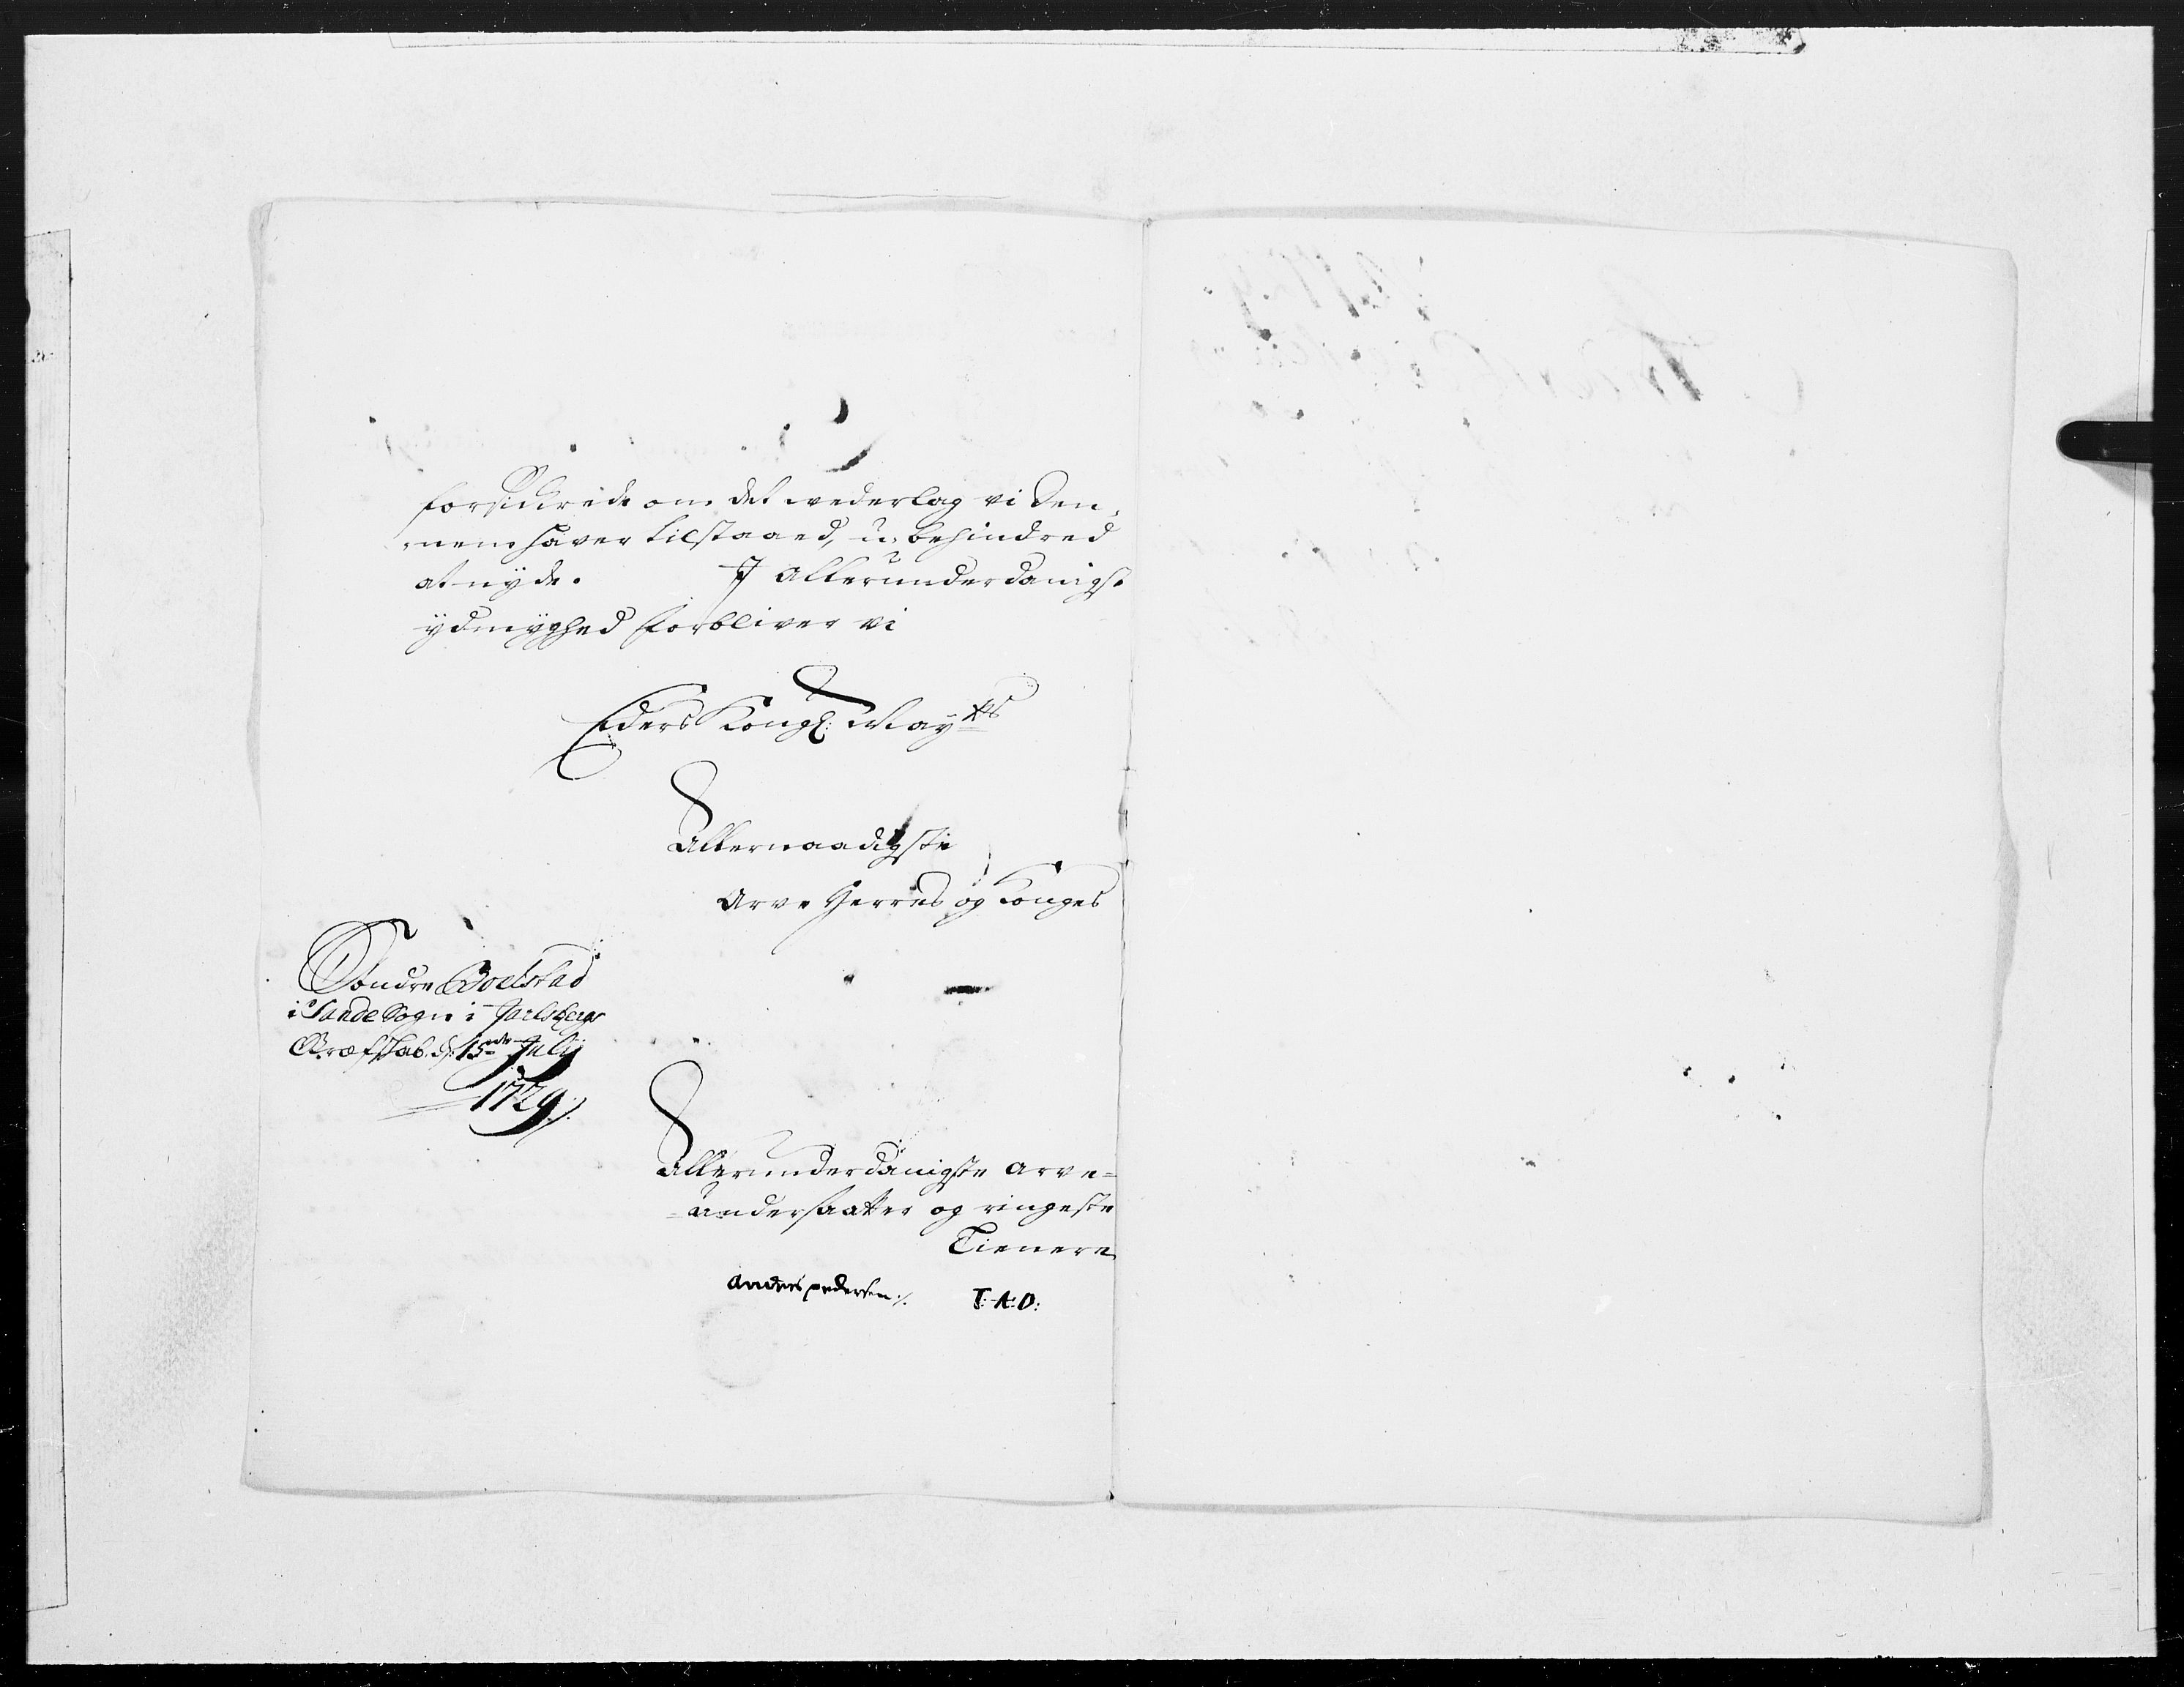 forsickrede om det wederlag vi den,
nem haver tilstaaed, u-behindred
at nyde. I Allerunderdanigst
ydmyghed forbliver vi
Eders Kongl: Mayts
Allernaadigste
Arve Herres og Konges
Søndre Boelstad
i Sande Sogn i Jarlsbergs
Græfskab. d: 15de Julij
1729 ./.
Allerunderdanigste arve-
undersaatter og ringeste
Tienere
Anders pedersen ./. T: A: D: